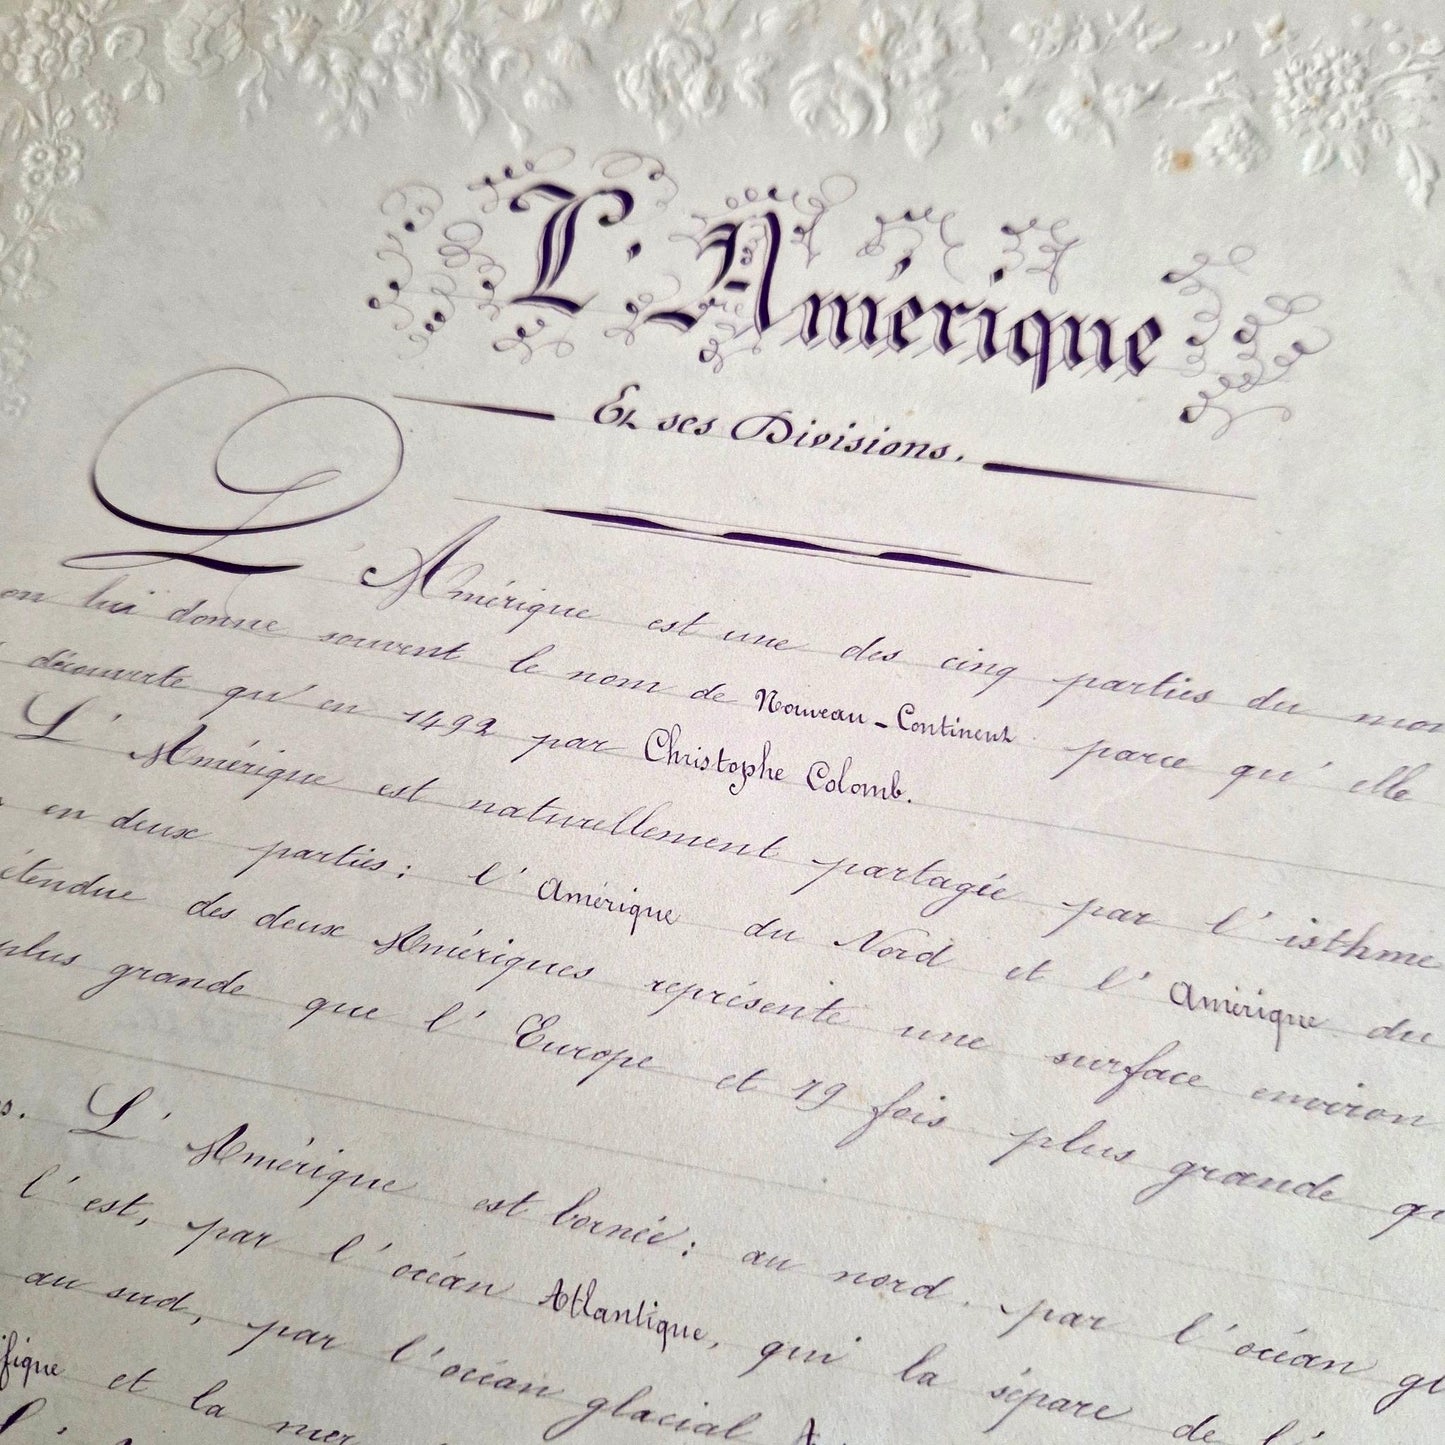 L'Amérique
Et ses Divisions.
L'Amérique est une des cinq parties du
on lui donne souvent le nom de Nouveau-Continent parce qu'elle
découverte qu'en 1492 par Christophe Colomb.
L'Amérique est naturellement partagée par l'isthme
en deux parties: l'Amérique du Nord et l'Amérique du
étendue des deux Amériques représente une surface environ
plus grande que l'Europe et 79 fois plus grande
L'Amérique est bornée: au nord. par l'océan
l'est, par l'océan Atlantique, qui la sépare de l'
au sud, par l'océan glacial
et la mer